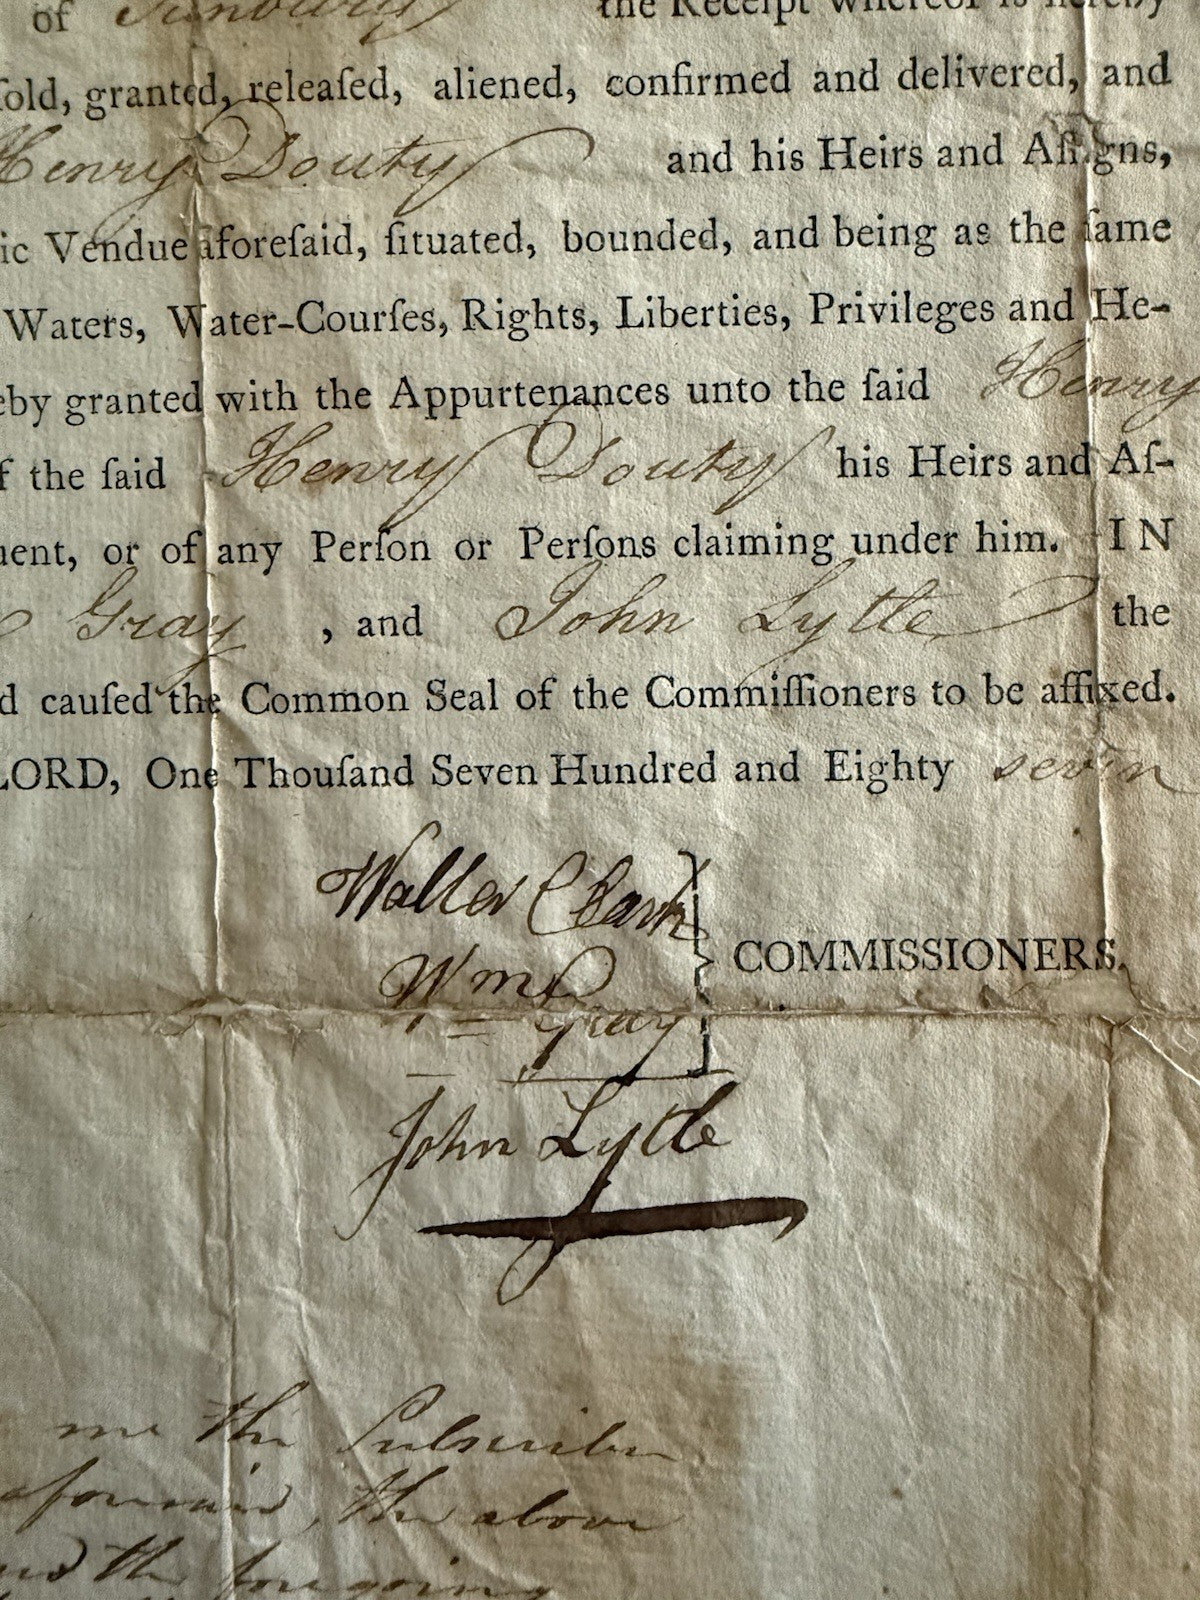 of Sunbury the Receipt whereof is hereby
ſold, granted, releaſed, aliened, confirmed and delivered, and
Henry Douty and his Heirs and Aſſigns,
ic Vendue aforeſaid, ſituated, bounded, and being as the ſame
Waters, Water-Courſes, Rights, Liberties, Privileges and He-
eby granted with the Appurtenances unto the ſaid Henry
f the ſaid Henry Douty his Heirs and Aſ-
ent, or of any Perſon or Perſons claiming under him. IN
Gray , and John Lytle the
d cauſed the Common Seal of the Commiſſioners to be affixed.
LORD, One Thouſand Seven Hundred and Eighty seven
Walter Clark
Wm Gray
COMMISSIONERS.
John Lytle
me the Subscriber
aforesaid, the above
the foregoing